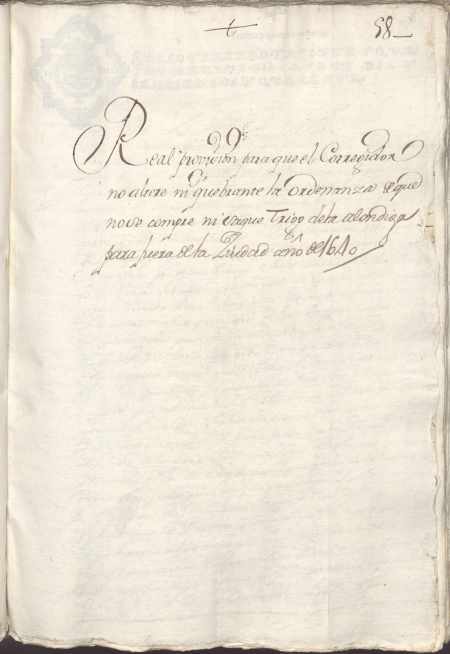 58
Real provision para que el Corregidor
no altere ni quebrante la ordenanza de que
no se compre ni saque Trigo de la alondiga
para fuera de la Ziudad año de 1640